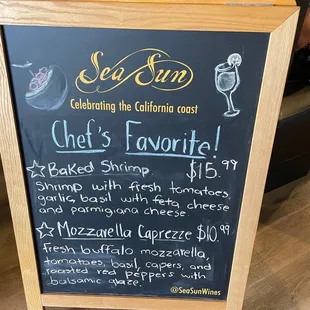 Sea Sun
Celebrating the California coast
Chef's Favorite!
☆Baked Shrimp $15.99
Shrimp with fresh tomatoes,
garlic, basil with feta cheese
and parmigiana cheese
☆Mozzarella Caprezze $10.99
fresh buffalo mozzarella,
tomatoes, basil, capers, and
roasted red peppers with
balsamic glaze.
@SeaSunWines